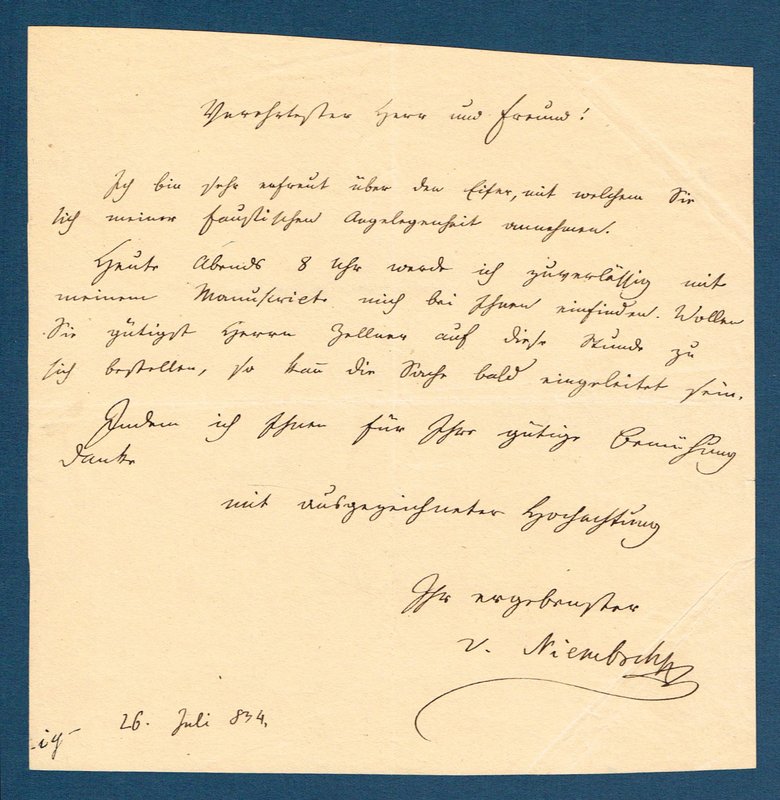 Verehrtester Herr und Freund!
Ich bin sehr erfreut über den Eifer, mit welchem Sie
sich meiner Faustischen Angelegenheit annehmen.
Heute Abends 8 Uhr werde ich zuverlässig mit
meinem Manuscripte mich bei Ihnen einfinden. Wollen
Sie gütigst Herrn Zellner auf diese Stunde zu
sich bestellen, so kañ die Sache bald eingeleitet sein.
Indem ich Ihnen für Ihre gütige Bemühung
danke
mit ausgezeichneter Hochachtung
Ihr ergebenster
v. Niembsch
26. Juli 834.